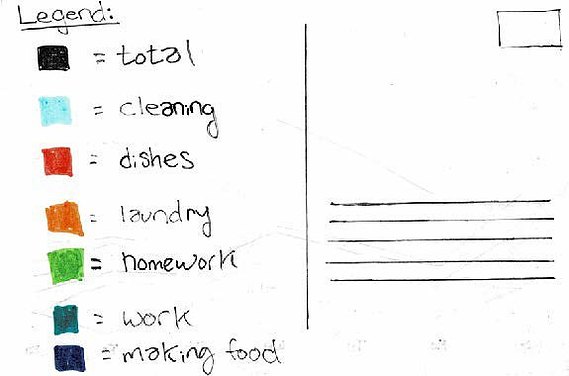 Legend:
= total
= cleaning
= dishes
= laundry
= homework
= work
= making food